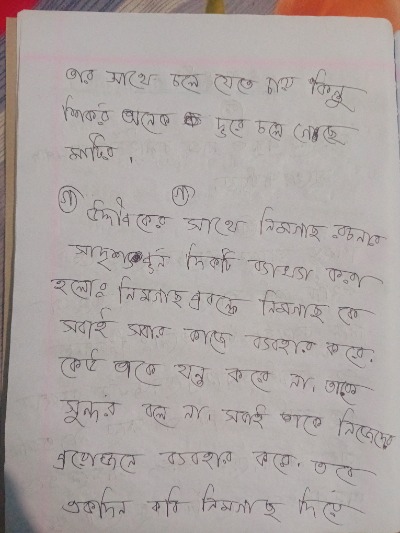 তার সাথে চলে যেতে চায় কিন্তু
শিকর অনেক দূরে চলে গেছে
মাটির।
গ গ
উদ্দীপকের সাথে নিমগাছ রচনার
সাদৃশ্যপূর্ন দিকটি ব্যাখ্যা করা
হলোঃ নিমগাছ প্রবন্ধে নিমগাছ কে
সবাই সবার কাজে ব্যবহার করে।
কেউ তাকে যত্ন করে না, তাকে
সুন্দর বলে না। সবাই তাকে নিজেদের
প্রয়োজনে ব্যবহার করে। তবে
একদিন কবি নিমগাছ দিয়ে